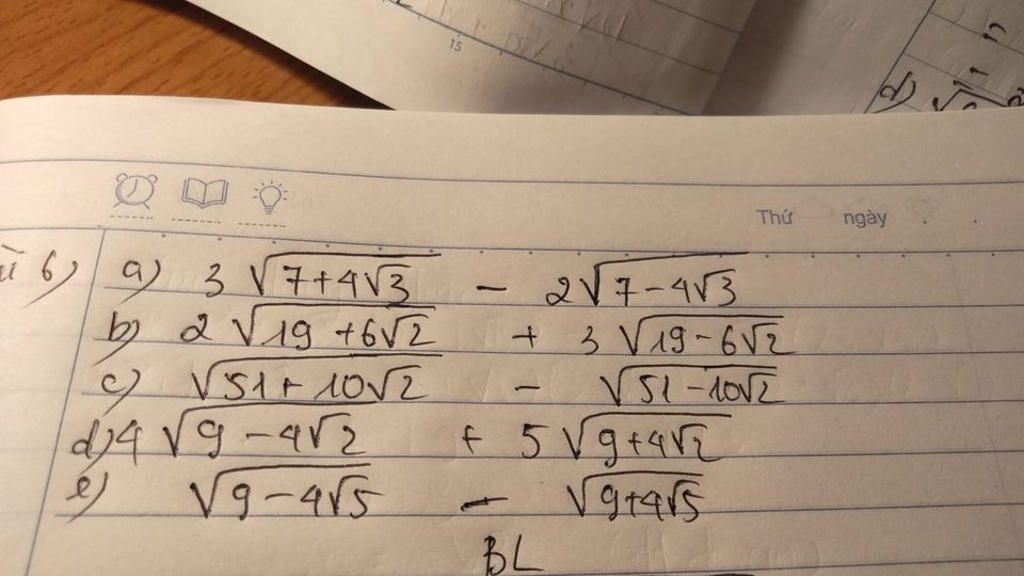 15
d)
Thứ ngày
6) a) 3√(7+4√3) - 2√(7-4√3)
b) 2√(19+6√2) + 3√(19-6√2)
c) √(51+10√2) - √(51-10√2)
d) 4√(9-4√2) + 5√(9+4√2)
e) √(9-4√5) - √(9+4√5)
BL